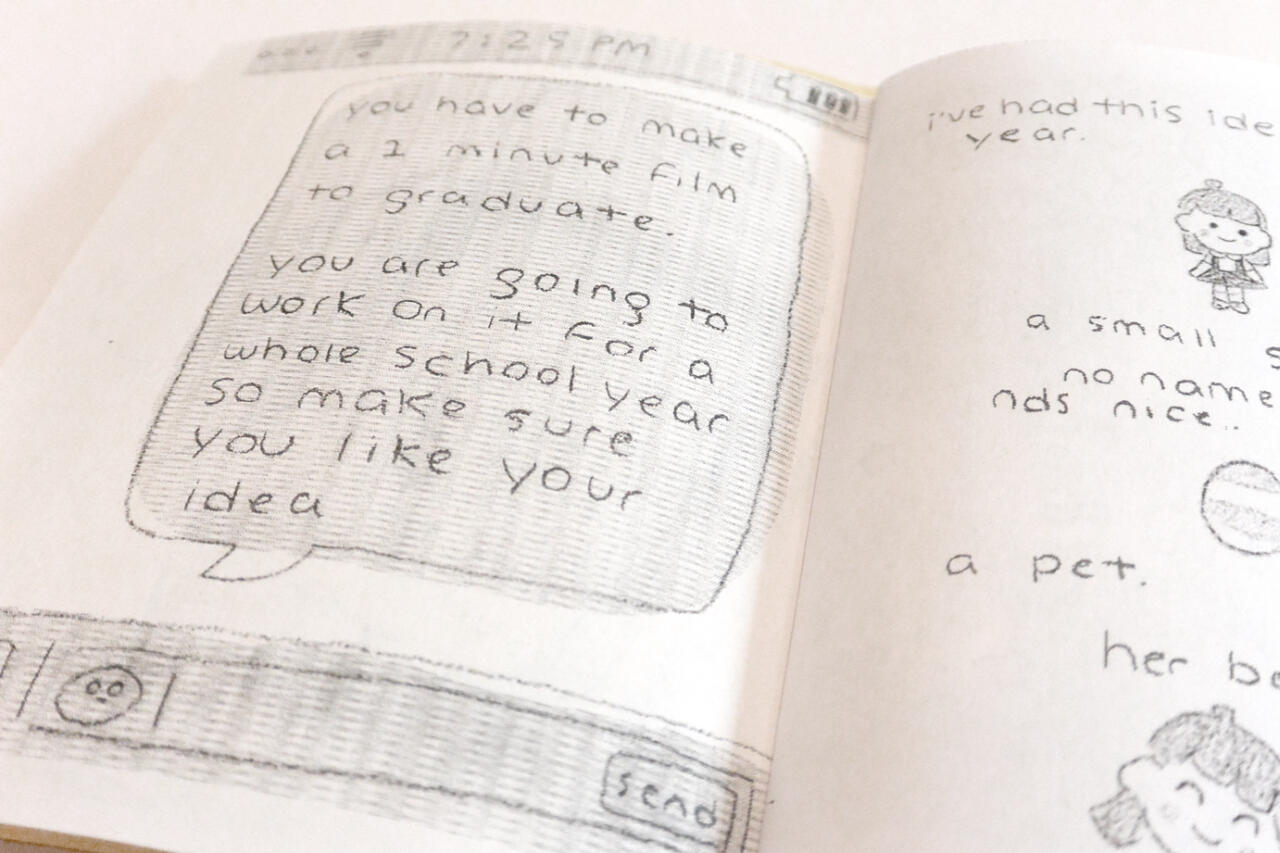 7:29 PM
you have to make
a 1 minute film
to graduate.
you are going to
work on it for a
whole school year
so make sure
you like your
idea
send
i've had this
year.
a small
no name
nice..
a pet.
her